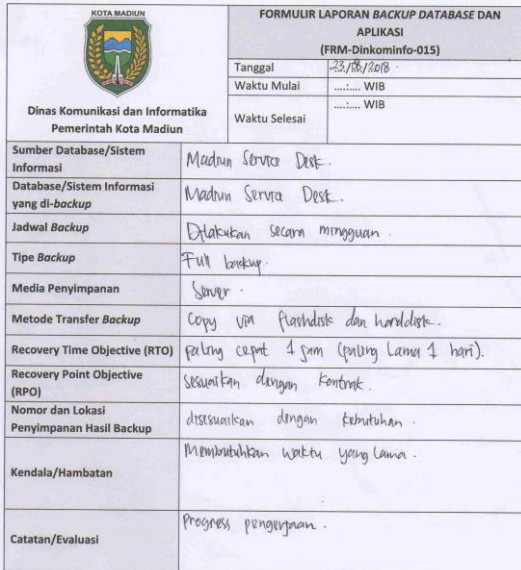 KOTA MADIUN
FORMULIR LAPORAN BACKUP DATABASE DAN
APLIKASI
(FRM-Dinkominfo-015)
Tanggal 23/8/2018.
Waktu Mulai ....:.... WIB
Waktu Selesai ....:.... WIB
Dinas Komunikasi dan Informatika
Pemerintah Kota Madiun
Sumber Database/Sistem
Informasi
Madiun Service Desk.
Database/Sistem Informasi
yang di-backup
Madiun Service Desk.
Jadwal Backup Dilakukan secara mingguan.
Tipe Backup Full backup.
Media Penyimpanan Server.
Metode Transfer Backup Copy via flashdisk dan harddisk.
Recovery Time Objective (RTO) paling cepat 1 jam (paling Lama 1 hari).
Recovery Point Objective
(RPO)
sesuaikan dengan kontrak.
Nomor dan Lokasi
Penyimpanan Hasil Backup
disesuaikan dengan kebutuhan.
Kendala/Hambatan Membutuhkan waktu yang lama.
Catatan/Evaluasi Progress pengerjaan.